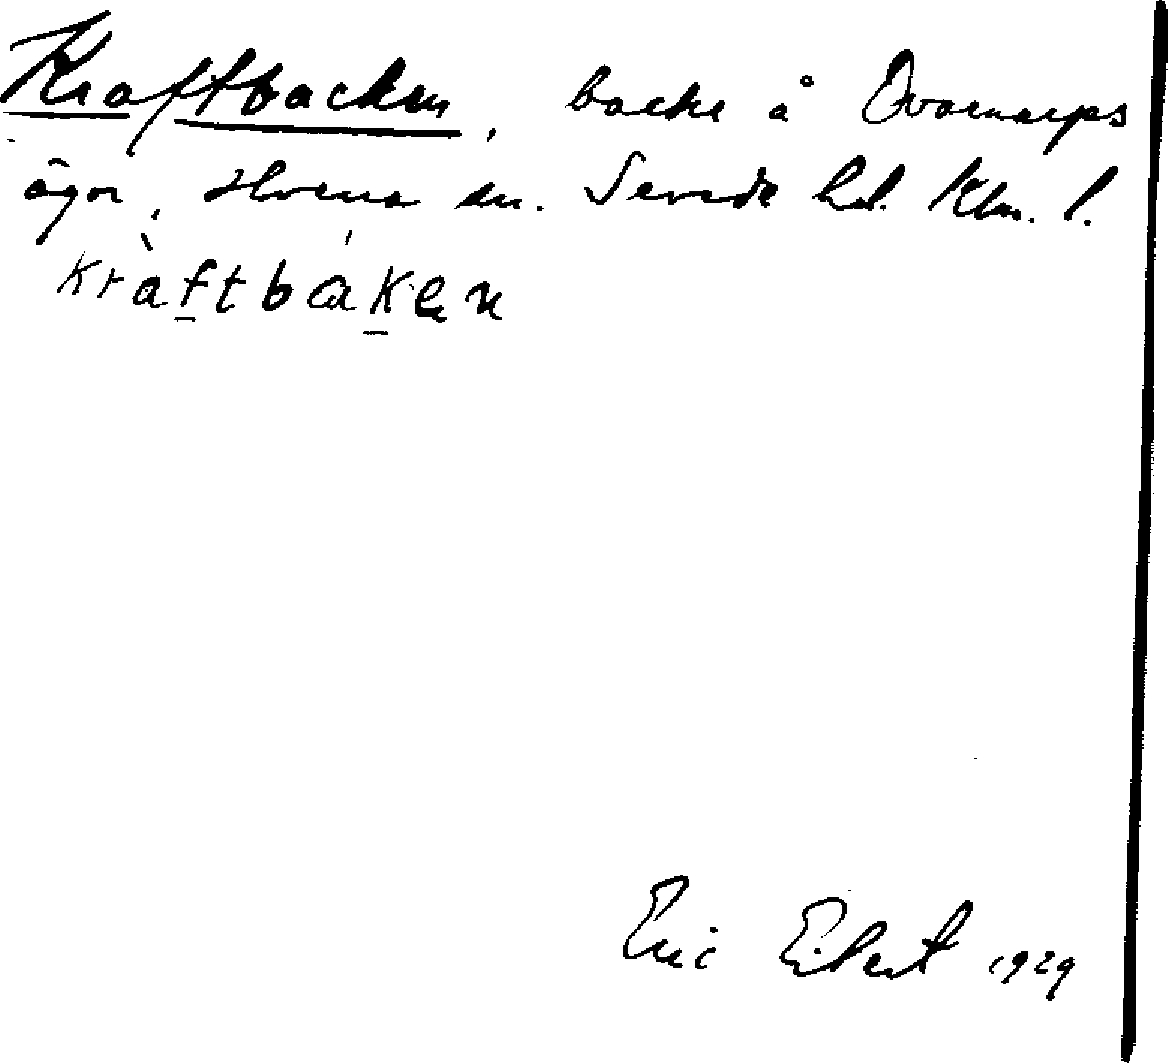 Kraftbacken, backe å Qvarnarps
ägor, sn. Sevede hd. Klm. l.
kràftbáken
Eric Eibert 1929